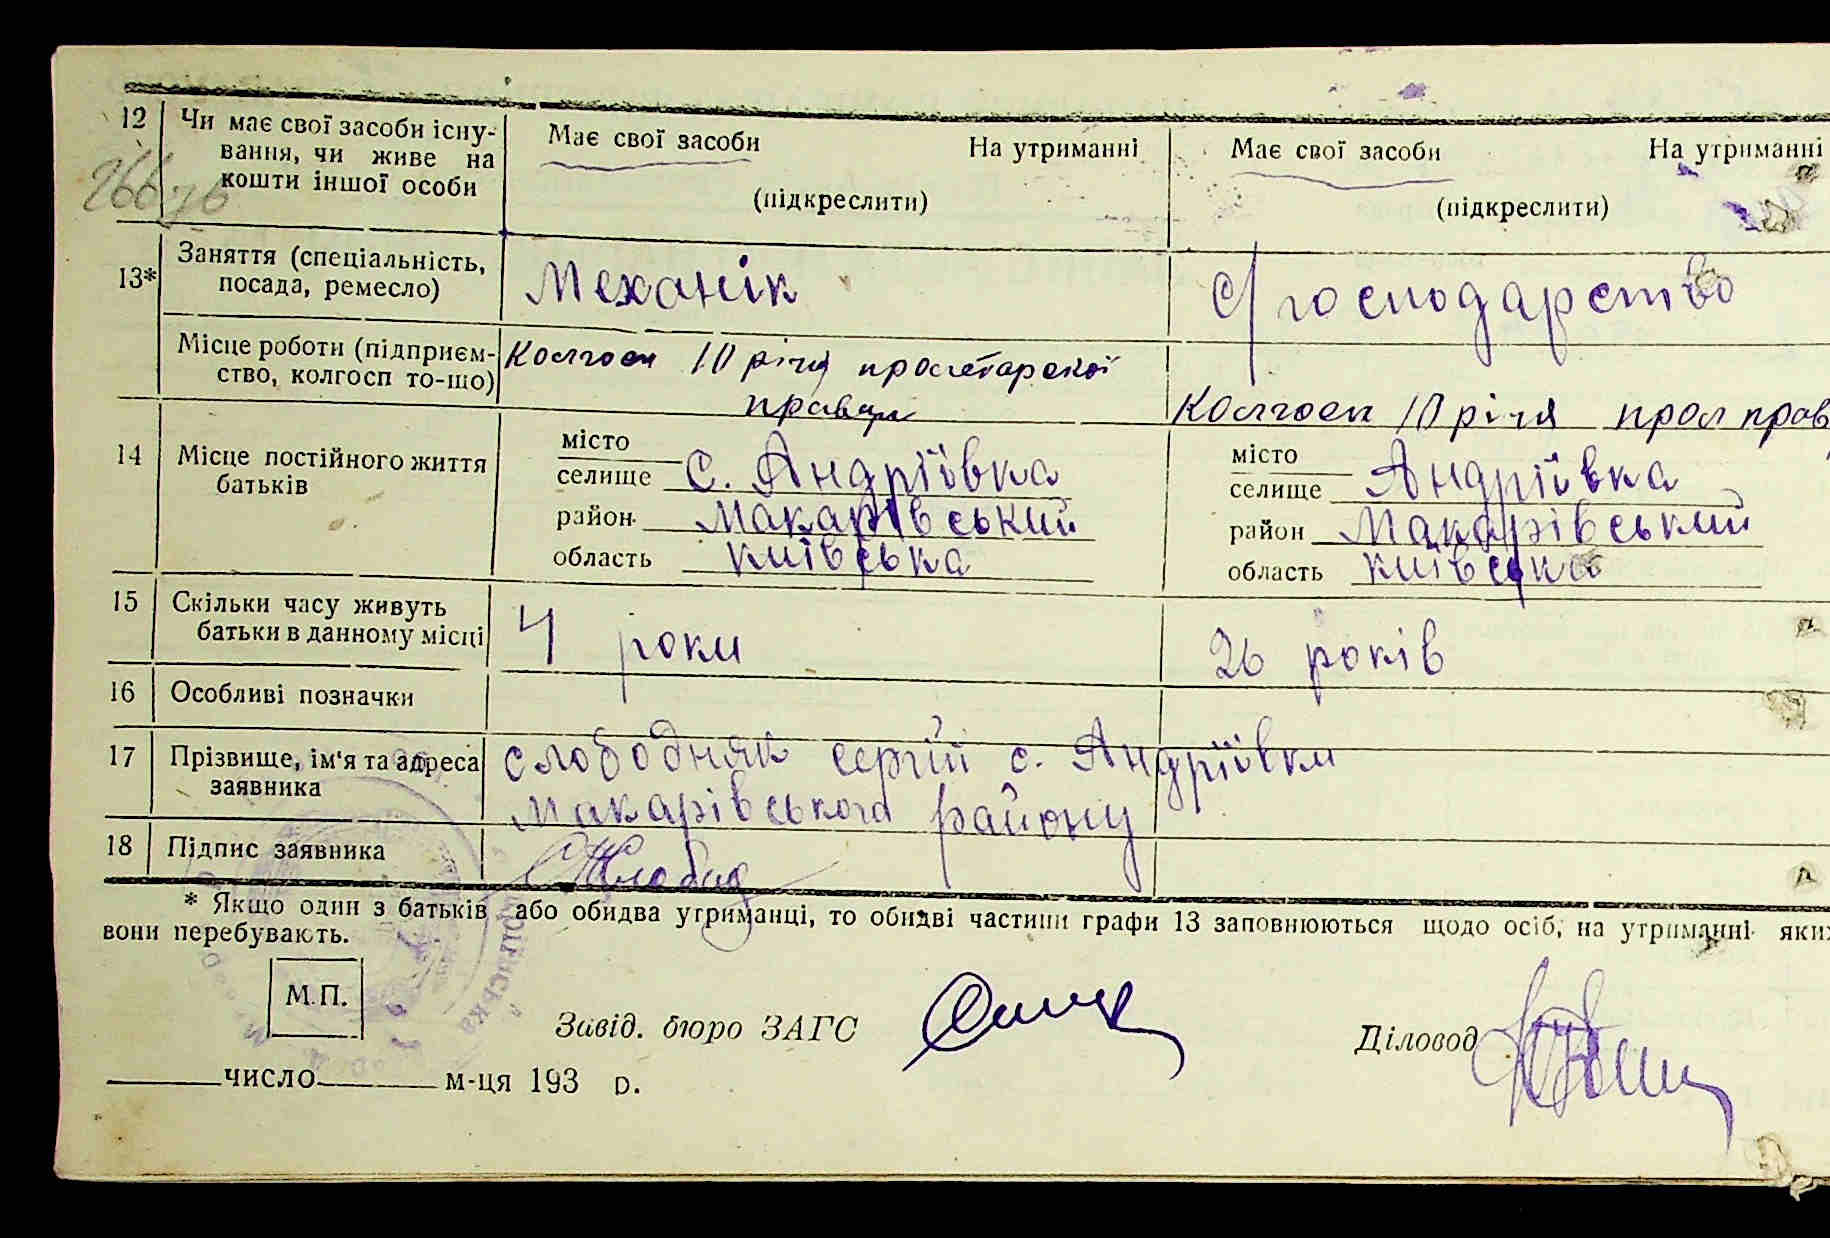 12 Чи має свої засоби існу- Має свої засоби На утриманні Має свої засоби На утриманні
вання, чи живе на
кошти іншої особи (підкреслити) (підкреслити)
266 зв
13* Заняття (спеціальність, Механік с/господарство
посада, ремесло)
Місце роботи (підприєм- Колгосп 10 річя пролетарської
ство, колгосп то-що) Колгосп 10 річя прол прав
14 Місце постійного життя місто місто
батьків селище с. Андріївка селище Андріївка
район Макарівський район Макарівський
область київська область київська
15 Скільки часу живуть 4 роки 26 років
батьки в данному місці
16 Особливі позначки
17 Прізвище, ім'я та адреса слободняк сергій с. Андріївки
заявника Макарівського району
18 Підпис заявника
* Якщо один з батьків або обидва утриманці, то обидві частини графи 13 заповнюються щодо осіб, на утриманні яких
вони перебувають.
М.П.
Завід. бюро ЗАГС Діловод
число м-ця 193 р.